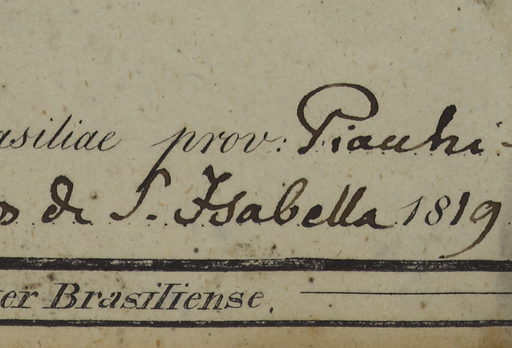 asiliae prov: Piauhi-
os de S. Isabella 1819
er Brasiliense.